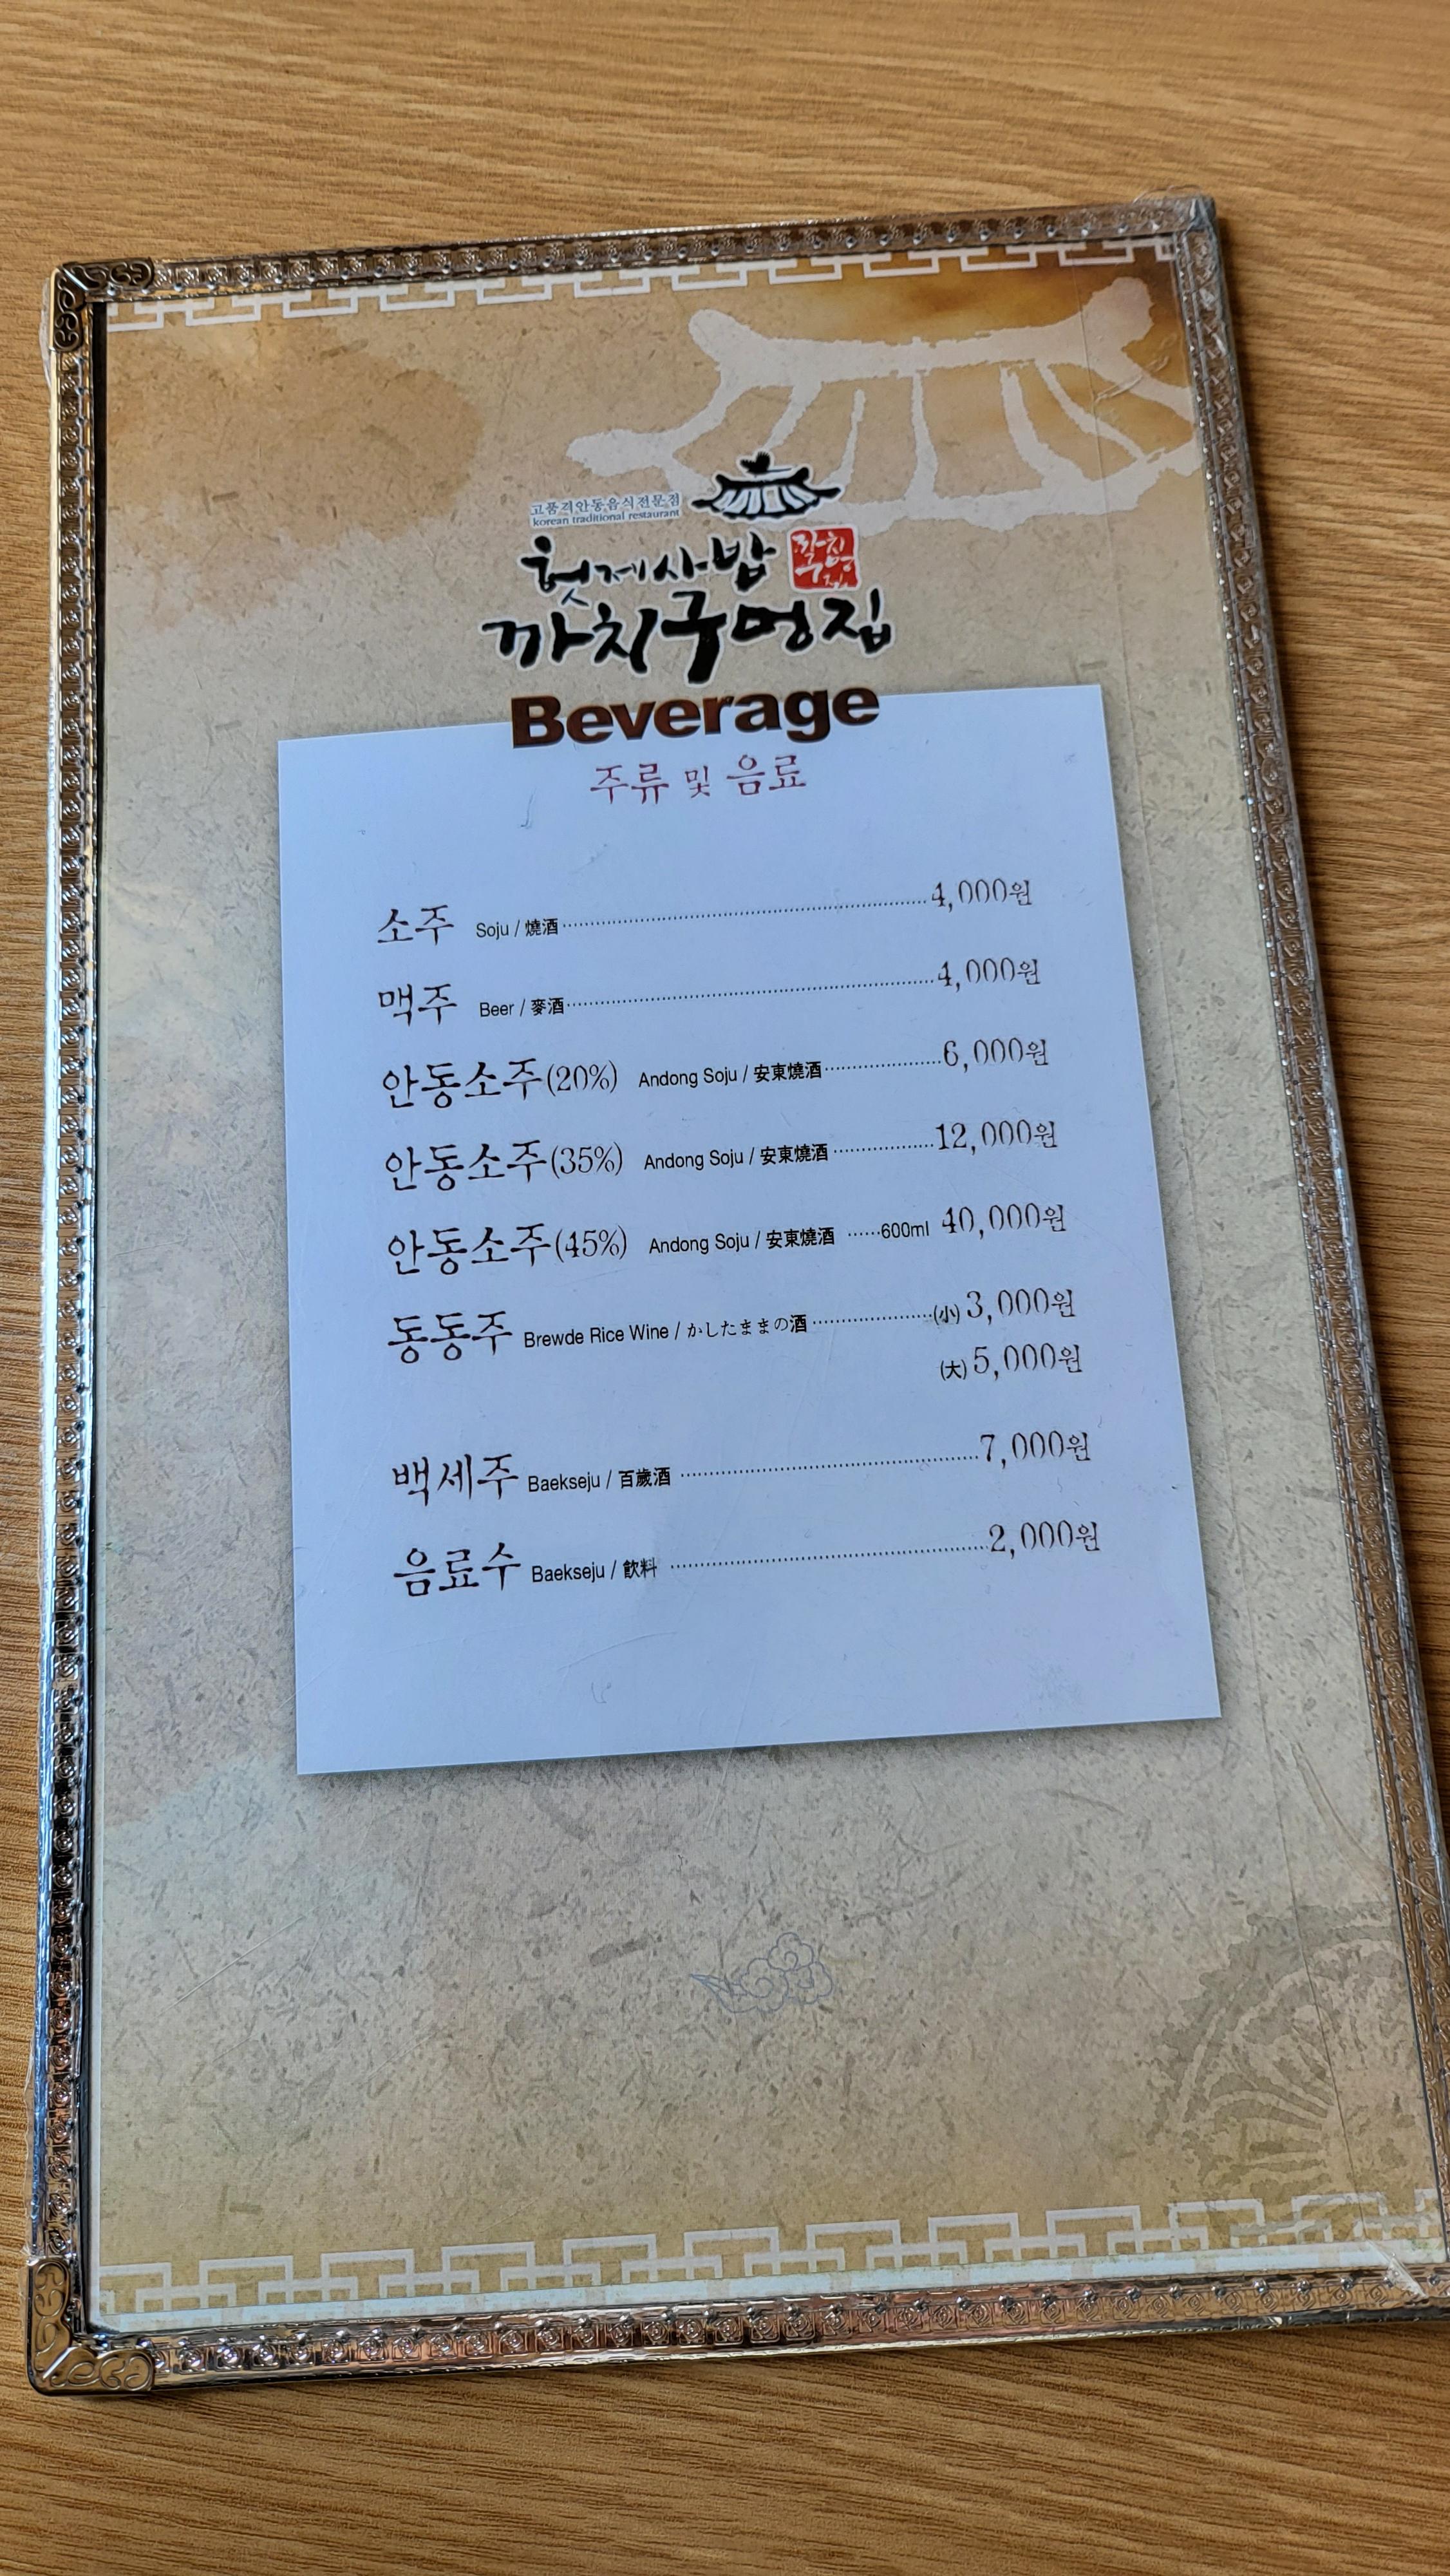 고품격안동음식전문점
korean traditional restaurant
헛제사밥
까치구멍집
Beverage
주류 및 음료
소주 Soju / 燒酒 4,000원
맥주 Beer / 麥酒 4,000원
안동소주(20%) Andong Soju / 安東燒酒 6,000원
안동소주(35%) Andong Soju / 安東燒酒 12,000원
안동소주(45%) Andong Soju / 安東燒酒 ······600ml 40,000원
동동주 Brewde Rice Wine / かしたままの酒 (小) 3,000원
(大) 5,000원
백세주 Baekseju / 百歲酒 7,000원
음료수 Baekseju / 飮料 2,000원